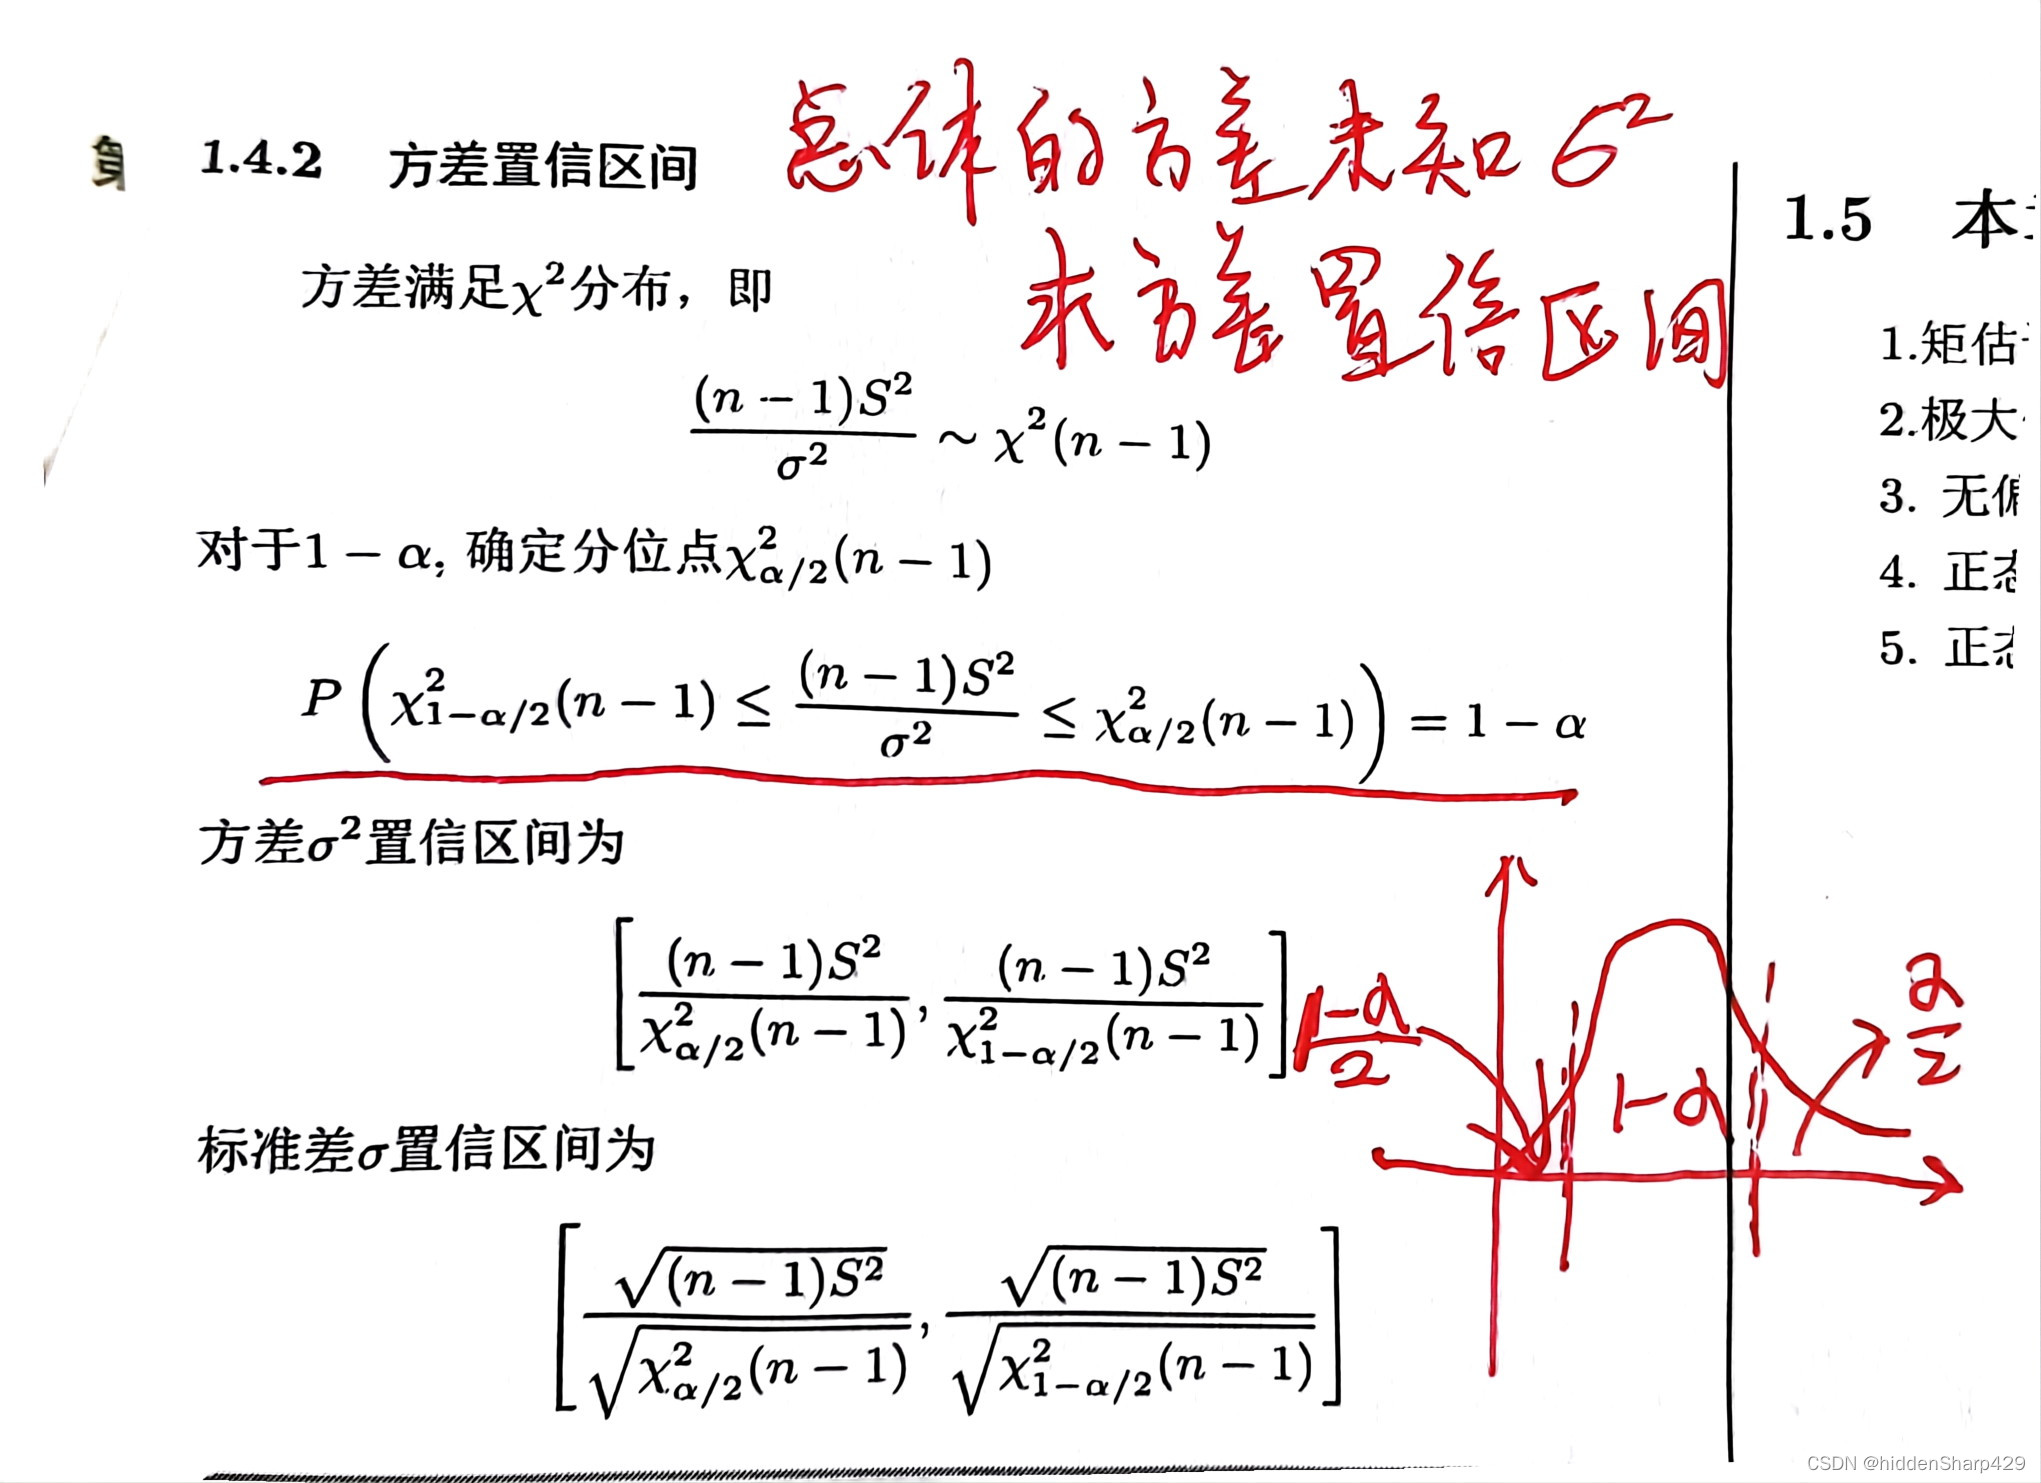 1.4.2 方差置信区间
总体的方差未知 σ²
求方差置信区间
方差满足χ²分布，即
(n − 1)S² / σ² ∼ χ²(n − 1)
对于1 − α, 确定分位点χ²_{α/2}(n − 1)
P( χ²_{1−α/2}(n − 1) ≤ (n − 1)S² / σ² ≤ χ²_{α/2}(n − 1) ) = 1 − α
方差σ²置信区间为
[ (n − 1)S² / χ²_{α/2}(n − 1), (n − 1)S² / χ²_{1−α/2}(n − 1) ]
标准差σ置信区间为
[ √(n − 1)S² / √χ²_{α/2}(n − 1), √(n − 1)S² / √χ²_{1−α/2}(n − 1) ]
1-α / 2
1-α
α / 2
1.5 本
1.矩估
2.极大
3. 无
4. 正
5. 正
CSDN @hiddenSharp429